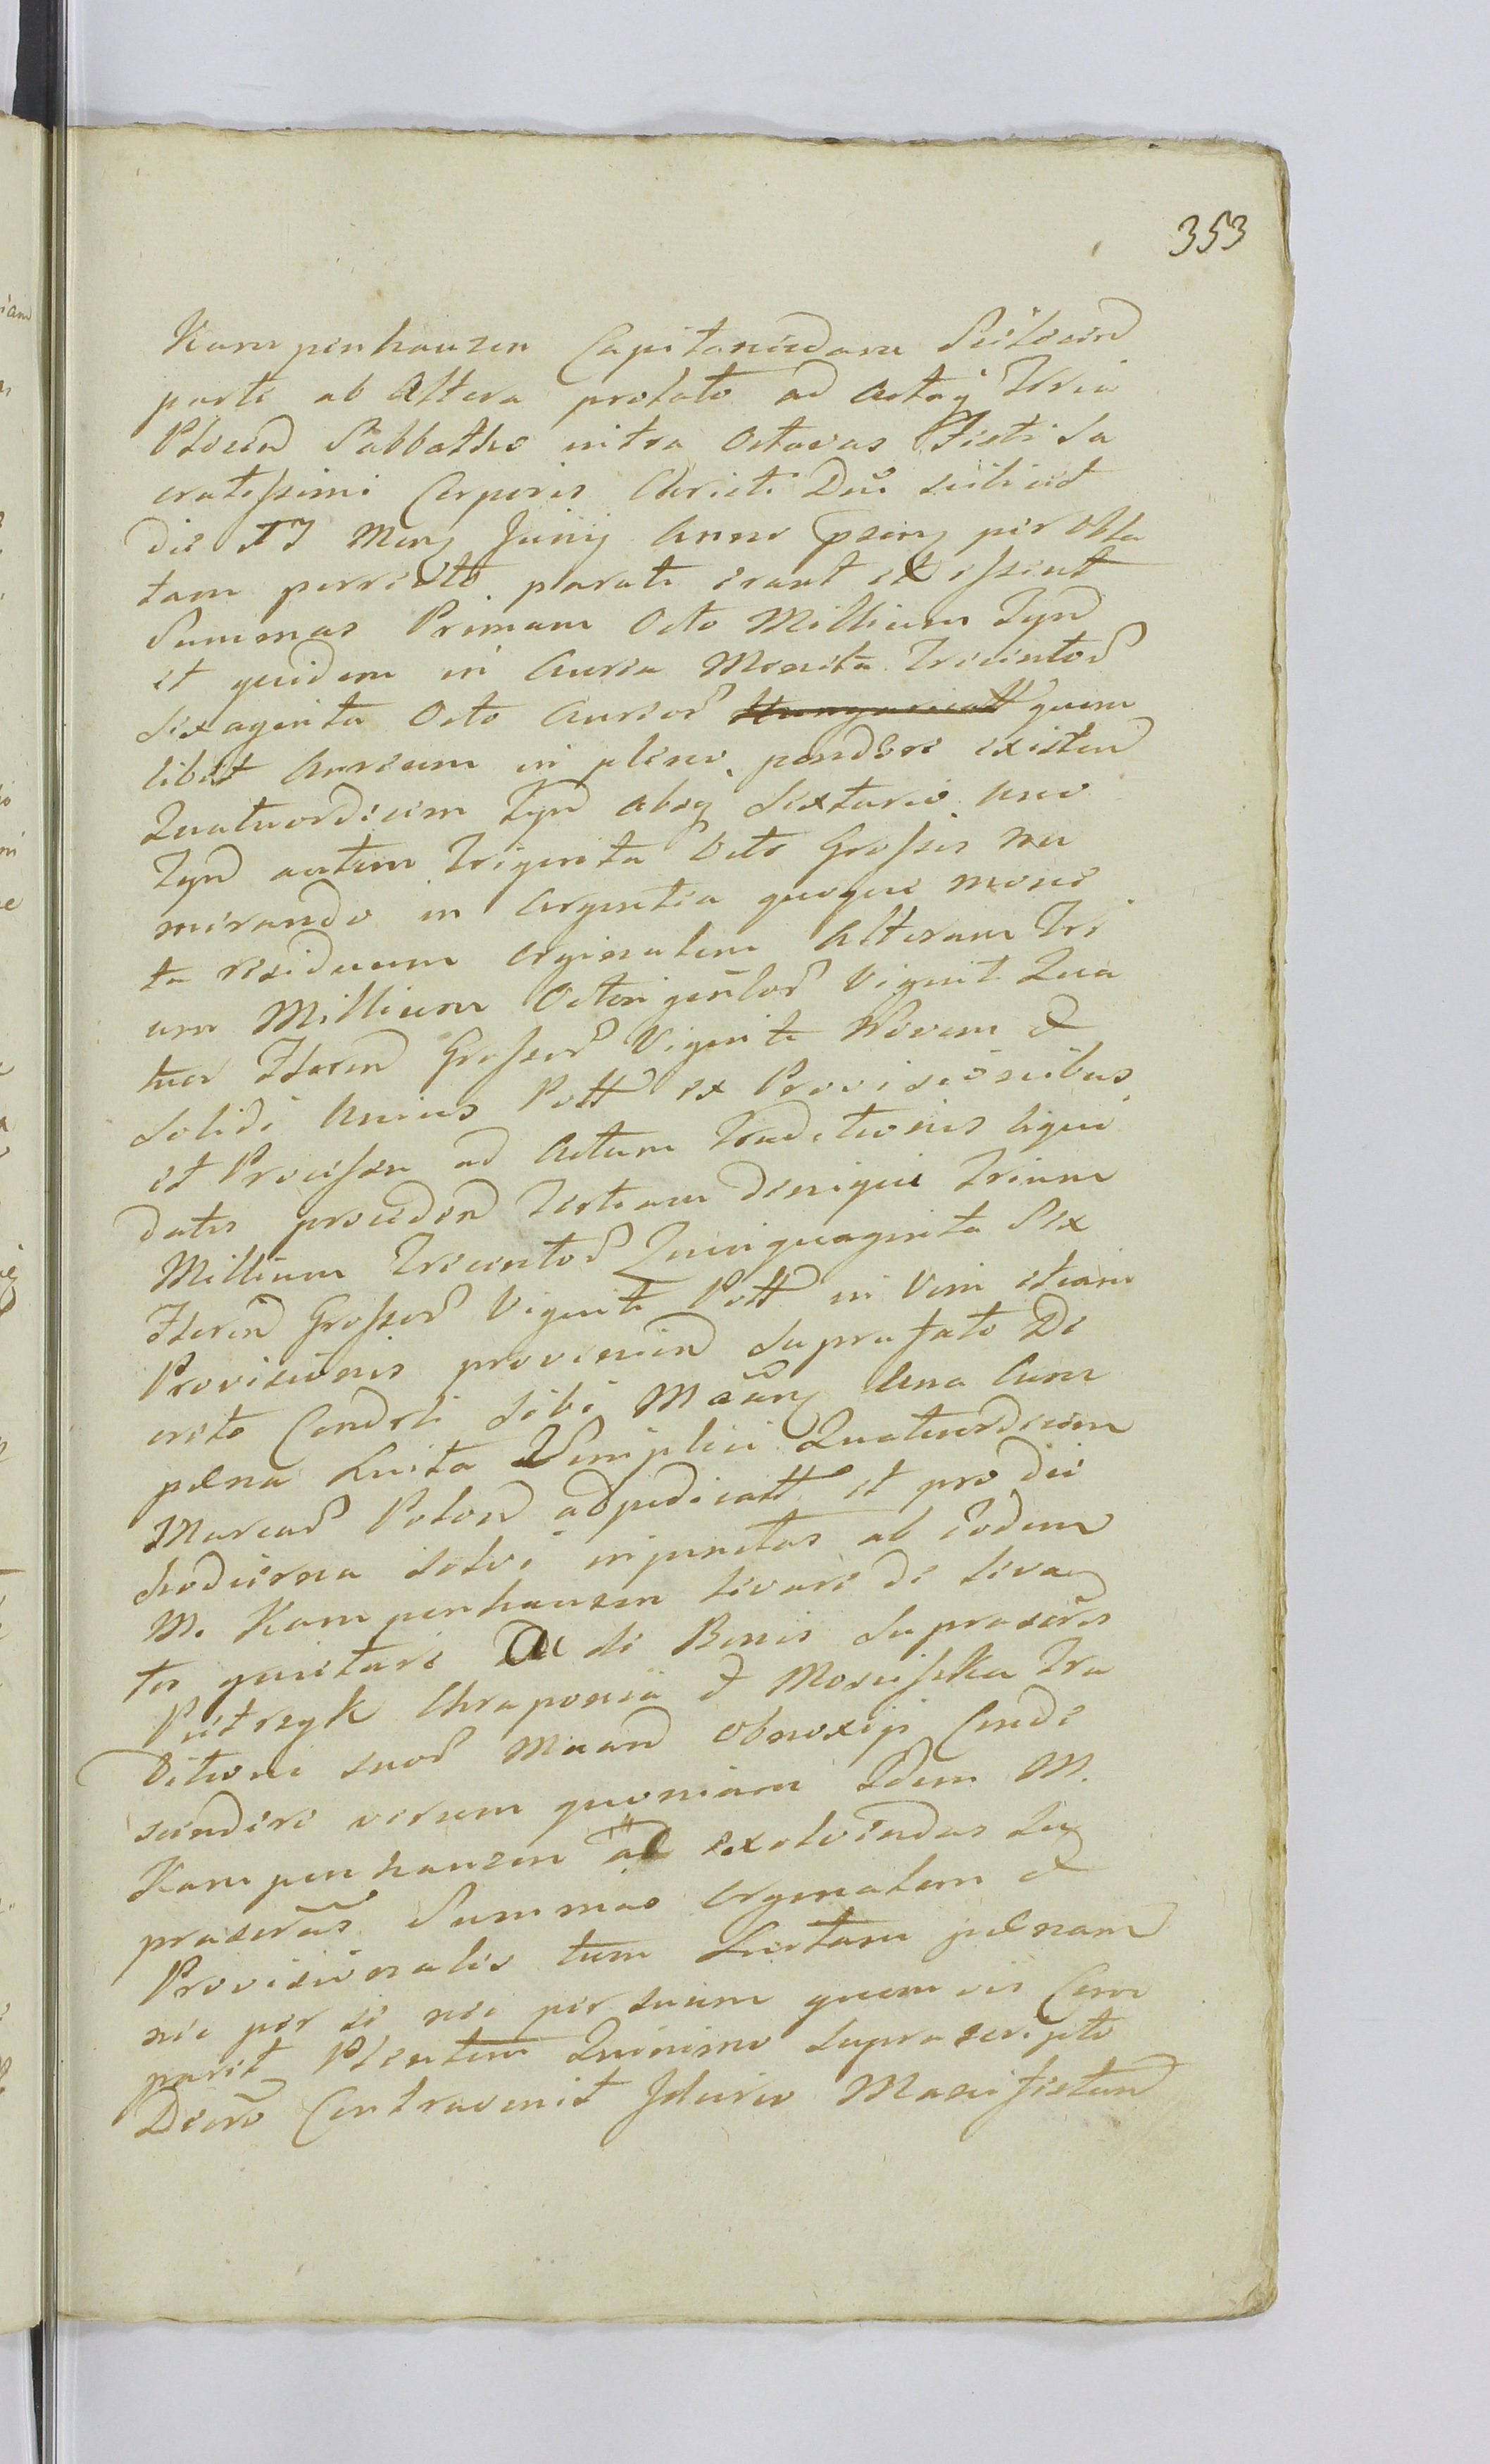 353
Kampenhauzen Capitaneidam
parte ab Altera prolato ad Actaq Trria
Plocen Sabbatho intra Octavas Festi Sa
cratissimi Corporis Christi Dni scilicet
die Mens Junij Anno psenj per Obla
tam porrecto parati erant et essent
Summas Primam Octo Millium Tyn
et quidem in Aurea Moneta Trecentor
Sexaginta Octo Aureor Hungaricall quem
libet Aureum in pleno pondere existen
Quatuordecim Tyn absq Sextario uno
Tyn autem Triginta Octo Grossis nu
merando in Argentea quoque mone
ta residuum Orginalem Alteram Tri
um Millium Octingentor Vigint Qua
tuor Floren Grossor Viginti Novem &
Solidi Unius Poll ex Provisionibus
et Processu ad Actum Traditionis liqui
datis proceden Tertiam denique Trium
Millium Trecentor Quinquaginta Sex
Floren Grossor Viginti Poll in Vim etiam
Provisionis provenien Suprafato De
creto Condrli sibi Una Cum
pœna Luita Simplici Quatuordecim
Marcar Polon adjudicatt et pro die
hodierna solvi injunctas ab eodem
M. Kampenhauzen levare de leva
tis quietare Ac de Bonis Suprascris
Pietrzyk Chraponia & Mosciska Tra
ditioni suor Obnoxijs Conde
scendere verum quoniam Idem M.
Kampenhauzen ad exolvendas Su
prascras Summas Orginalem &
Provisionales tum Luitam pœnam
nec per se nec per suum quem vis Com
paret Plentem Quinimo Suprascripto
Decro Contravenit Ideirco Manifestand